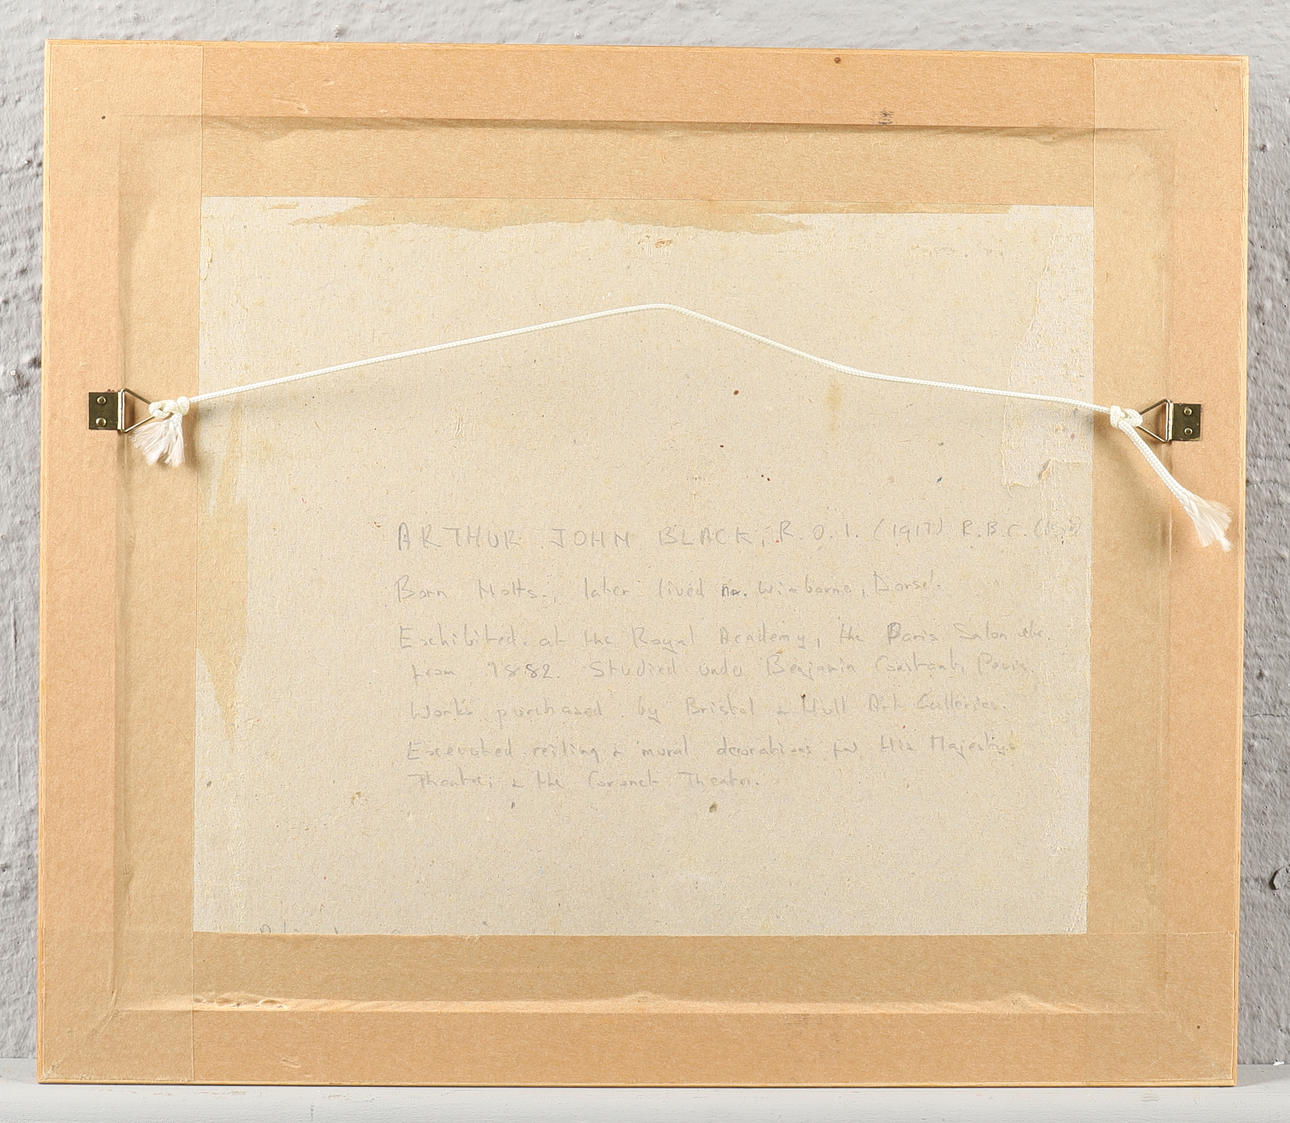 ARTHUR JOHN BLACK, R.O.I. (1917) R.B.C.
Born Notts., later lived nr. Wimborne, Dorset.
Exhibited at the Royal Academy, the Paris Salon etc.
from 1882. Studied under Benjamin Constant, Paris.
Works purchased by Bristol & Hull Art Galleries.
Executed ceiling & mural decorations for His Majesty's
Theatre, & the Coronet Theatre.